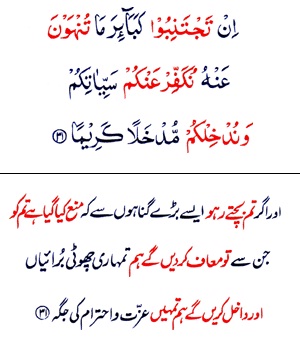 اِنْ تَجْتَنِبُوْا كَبَآئِرَ مَا تُنْهَوْنَ
عَنْهُ نُكَفِّرْ عَنْكُمْ سَيِّاٰتِكُمْ
وَنُدْخِلْكُمْ مُّدْخَلًا كَرِيْمًا ﴿۳۱﴾
اور اگر تم بچتے رہو ایسے بڑے گناہوں سے کہ منع کیا گیا ہے تم کو
جن سے تو معاف کردیں گے ہم تمہاری چھوٹی بُرائیاں
اور داخل کریں گے ہم تمہیں عزّت و احترام کی جگہ ﴿۳۱﴾